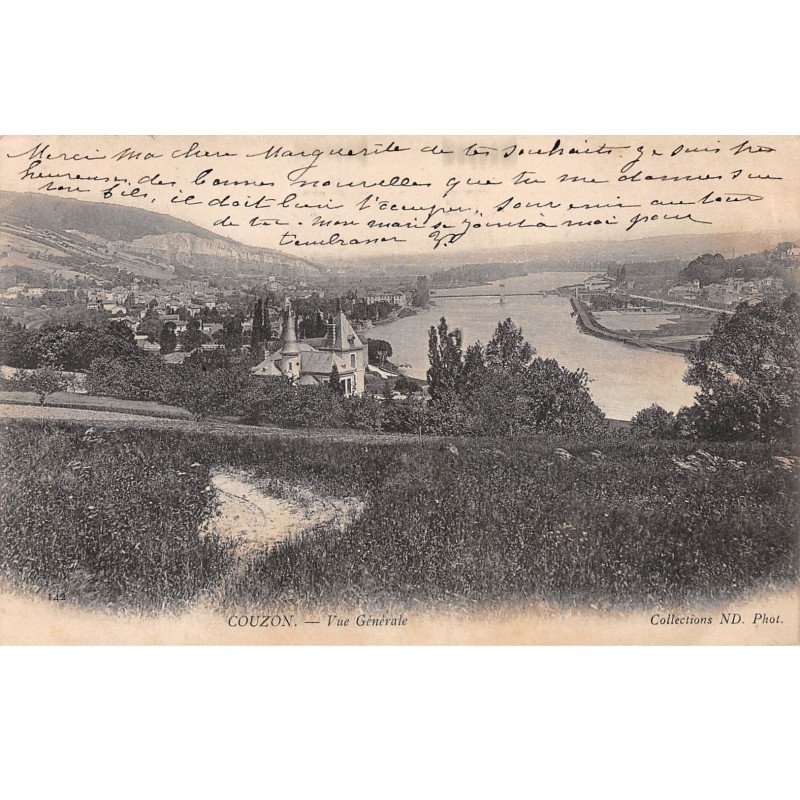 Merci ma chere Marguerite de tes souhaits. je suis tres
heureuse, des bonnes nouvelles que tu me donnes sur
ton fils, il doit bien t'occuper, souvenir autour
de toi. mon mari se joint à moi pour
t'embrasser
142
COUZON. — Vue Générale
Collections ND. Phot.